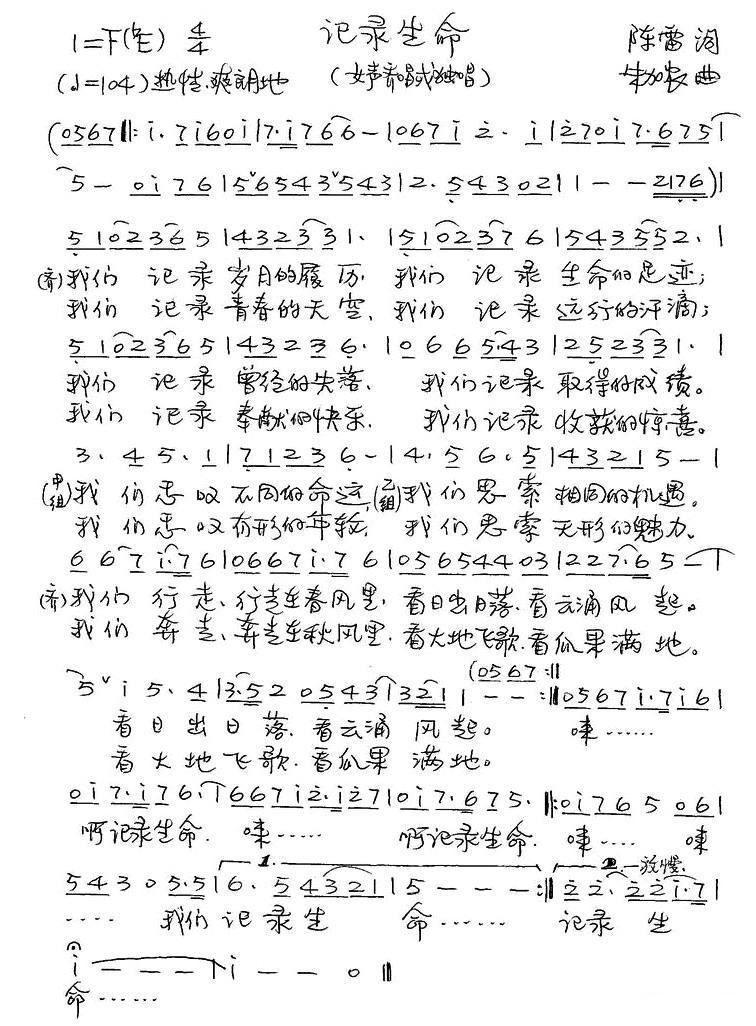 记录生命
1=F(♭E) 4/4 陈雷 词
(♩=104) 热情、爽朗地 (女声齐唱或独唱) 朱加农 曲
(0567 ‖: i· 7i60i | 7·i766 - | 067i 2· i | 270i7·675 |
5 - 0i76 | 5ˇ6543ˇ543 | 2· 543021 | 1 - - 2176) |
5102365 | 432331· | 5102376 | 543552· |
(齐)我们 记录岁月的履历, 我们 记录 生命的足迹;
我们 记录青春的天空, 我们 记录 远行的汗滴;
5102365 | 43236· | 0665·43 | 252331· |
我们 记录 曾经的失落、 我们记录 取得的成绩。
我们 记录 奉献的快乐、 我们记录 收获的惊喜。
3· 45· 1 | 71236 - | 4· 56· 5 | 43215 - |
(甲组)我们忐叹不同的命运, (乙组)我们思索相同的机遇。
我们忐叹有形的年轮, 我们思索无形的魅力。
667i·76 | 0667i·76 | 05654403 | 227·65 - |
(齐)我们 行走、行走在春风里, 看日出日落、看云涌风 起。
我们 奔走、奔走在秋风里, 看大地飞歌、看瓜果满 地。
(0567 :‖
5ˇi5· 4 | 3·520543 | 3211 - - :‖ 0567i·7i6 |
看日出日落、看云涌 风起。 唻……
看大地飞歌、看瓜果 满地。
0i7·i76· | 667i2·i27 | 0i7·675· ‖: 0i765 06 |
啊记录生命、 唻…… 啊记录生命、 唻…… 唻
1. 2. 放慢
54305·5 | 6· 54321 | 5 - - - :‖ 22·22i·7 |
…… 我们记录生 命…… 记录 生
i - - - | i - - 0 ‖
命……